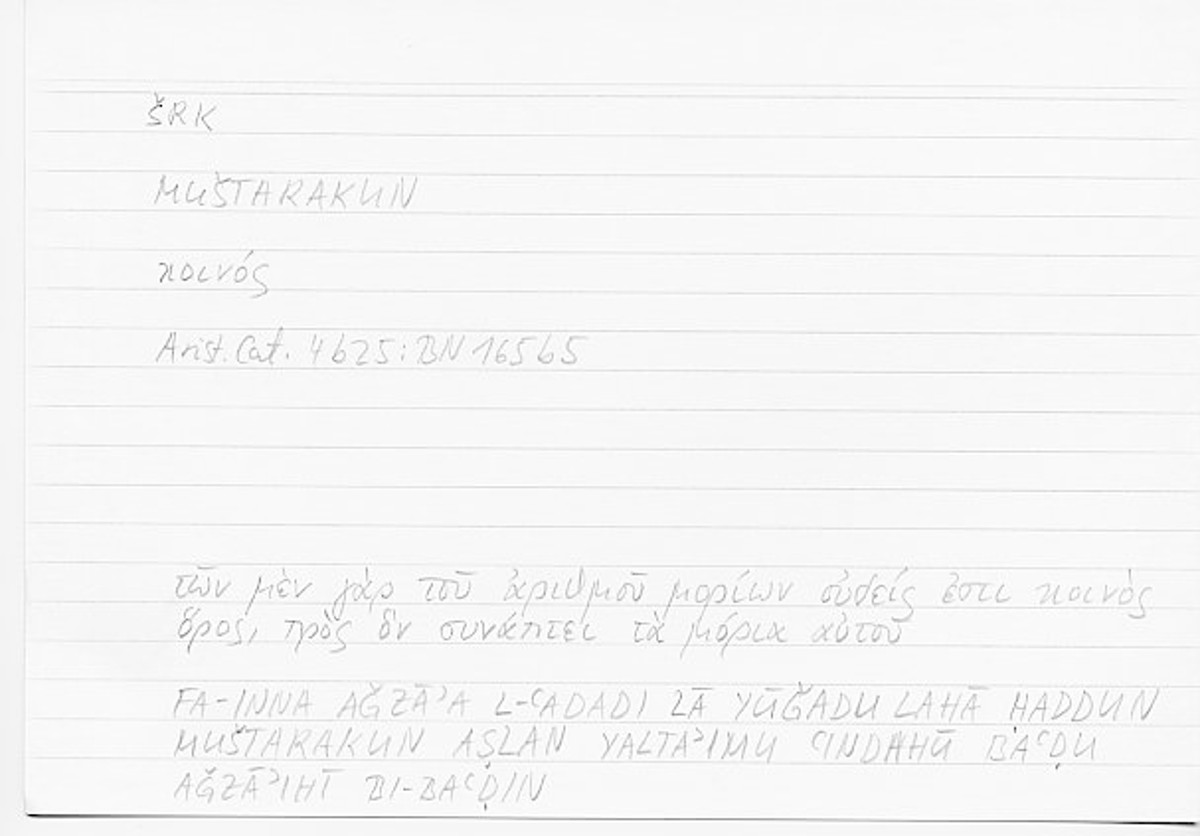 ŠRK
MUŠTARAKUN
κοινός
Arist. Cat. 4b25; BN 165b5
τῶν μὲν γὰρ τοῦ ἀριθμοῦ μορίων οὐδείς ἐστι κοινὸς
ὅρος, πρὸς ὃν συνάπτει τὰ μόρια αὐτοῦ
FA-INNA AǦZĀʾA L-ʿADADI LĀ YŪǦADU LAHĀ ḤADDUN
MUŠTARAKUN AṢLAN YALTAʾIMU ʿINDAHŪ BAʿḌU
AǦZĀʾIHĪ BI-BAʿḌIN